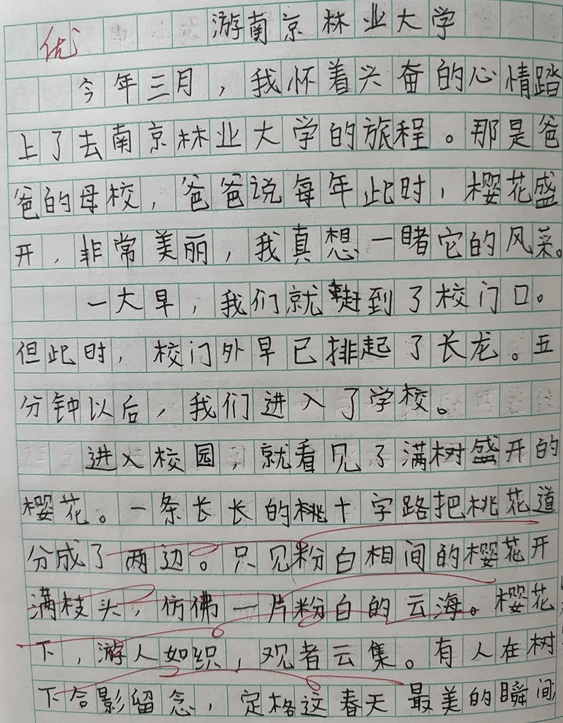 游南京林业大学
优
今年三月，我怀着兴奋的心情踏
上了去南京林业大学的旅程。那是爸
爸的母校，爸爸说每年此时，樱花盛
开，非常美丽，我真想一睹它的风采。
一大早，我们就赶到了校门口。
但此时，校门外早已排起了长龙。五
分钟以后，我们进入了学校。
进入校园，就看见了满树盛开的
樱花。一条长长的桃十字路把桃花道
分成了两边。只见粉白相间的樱花开
满枝头，仿佛一片粉白的云海。樱花
下，游人如织，观者云集。有人在树
下合影留念，定格这春天最美的瞬间